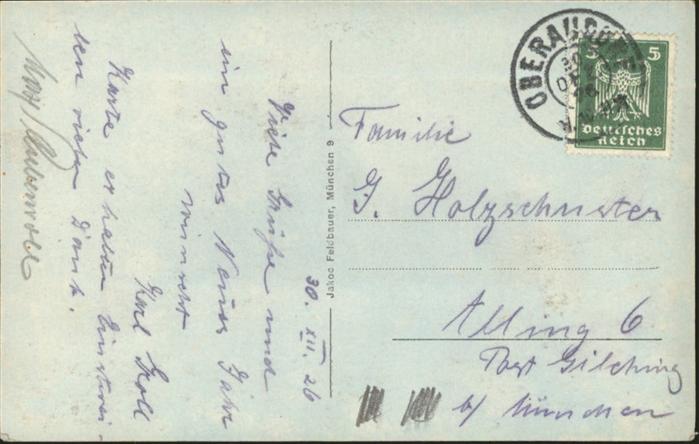 30. XII. 26
Viele Grüße und
ein gutes Neues Jahr
wünscht
Karl Groll
Karte erhalten Einstwei-
len vielen Dank.
Jakob Feldbauer, München 9
OBERAUDORF
30
DEZ
5
5
Deutsches
Reich
Familie
G. Holzschuster
Alling 6
Post Gilching
b/ München